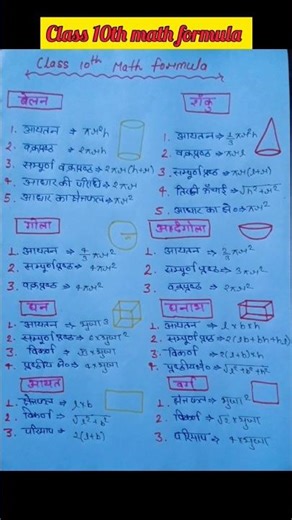 Class 10th math formula
Class 10th Math formula
बेलन
1. आयतन → πr²h
2. वक्रपृष्ठ → 2πrh
3. सम्पूर्ण वक्रपृष्ठ → 2πr(h+r)
4. आधार की परिधि → 2πr
5. आधार का क्षेत्रफल → πr²
शंकु
1. आयतन → 1/3 πr²h
2. वक्रपृष्ठ → πrl
3. सम्पूर्णपृष्ठ → πr(l+r)
4. तिर्यक ऊँचाई → √h²+r²
5. आधार का क्षे० → πr²
गोला
1. आयतन → 4/3 πr²
2. सम्पूर्णपृष्ठ → 4πr²
3. वक्रपृष्ठ → 4πr²
अर्द्धगोला
1. आयतन → 2/3 πr²
2. सम्पूर्णपृष्ठ → 3πr²
3. वक्रपृष्ठ → 2πr²
घन
1. आयतन → भुजा³
2. सम्पूर्णपृष्ठ → 6×भुजा²
3. विकर्ण → √3×भुजा
घनाभ
1. आयतन → l×b×h
2. सम्पूर्णपृष्ठ → 2(lb+bh+hl)
3. विकर्ण → 2(l+b)×h
√l²+b²+h²
आयत
1. क्षेत्रफल → l×b
2. विकर्ण → √l²+b²
3. परिमाप → 2(l+b)
वर्ग
1. क्षेत्रफल → भुजा²
2. विकर्ण → √2×भुजा
3. परिमाप → 4×भुजा